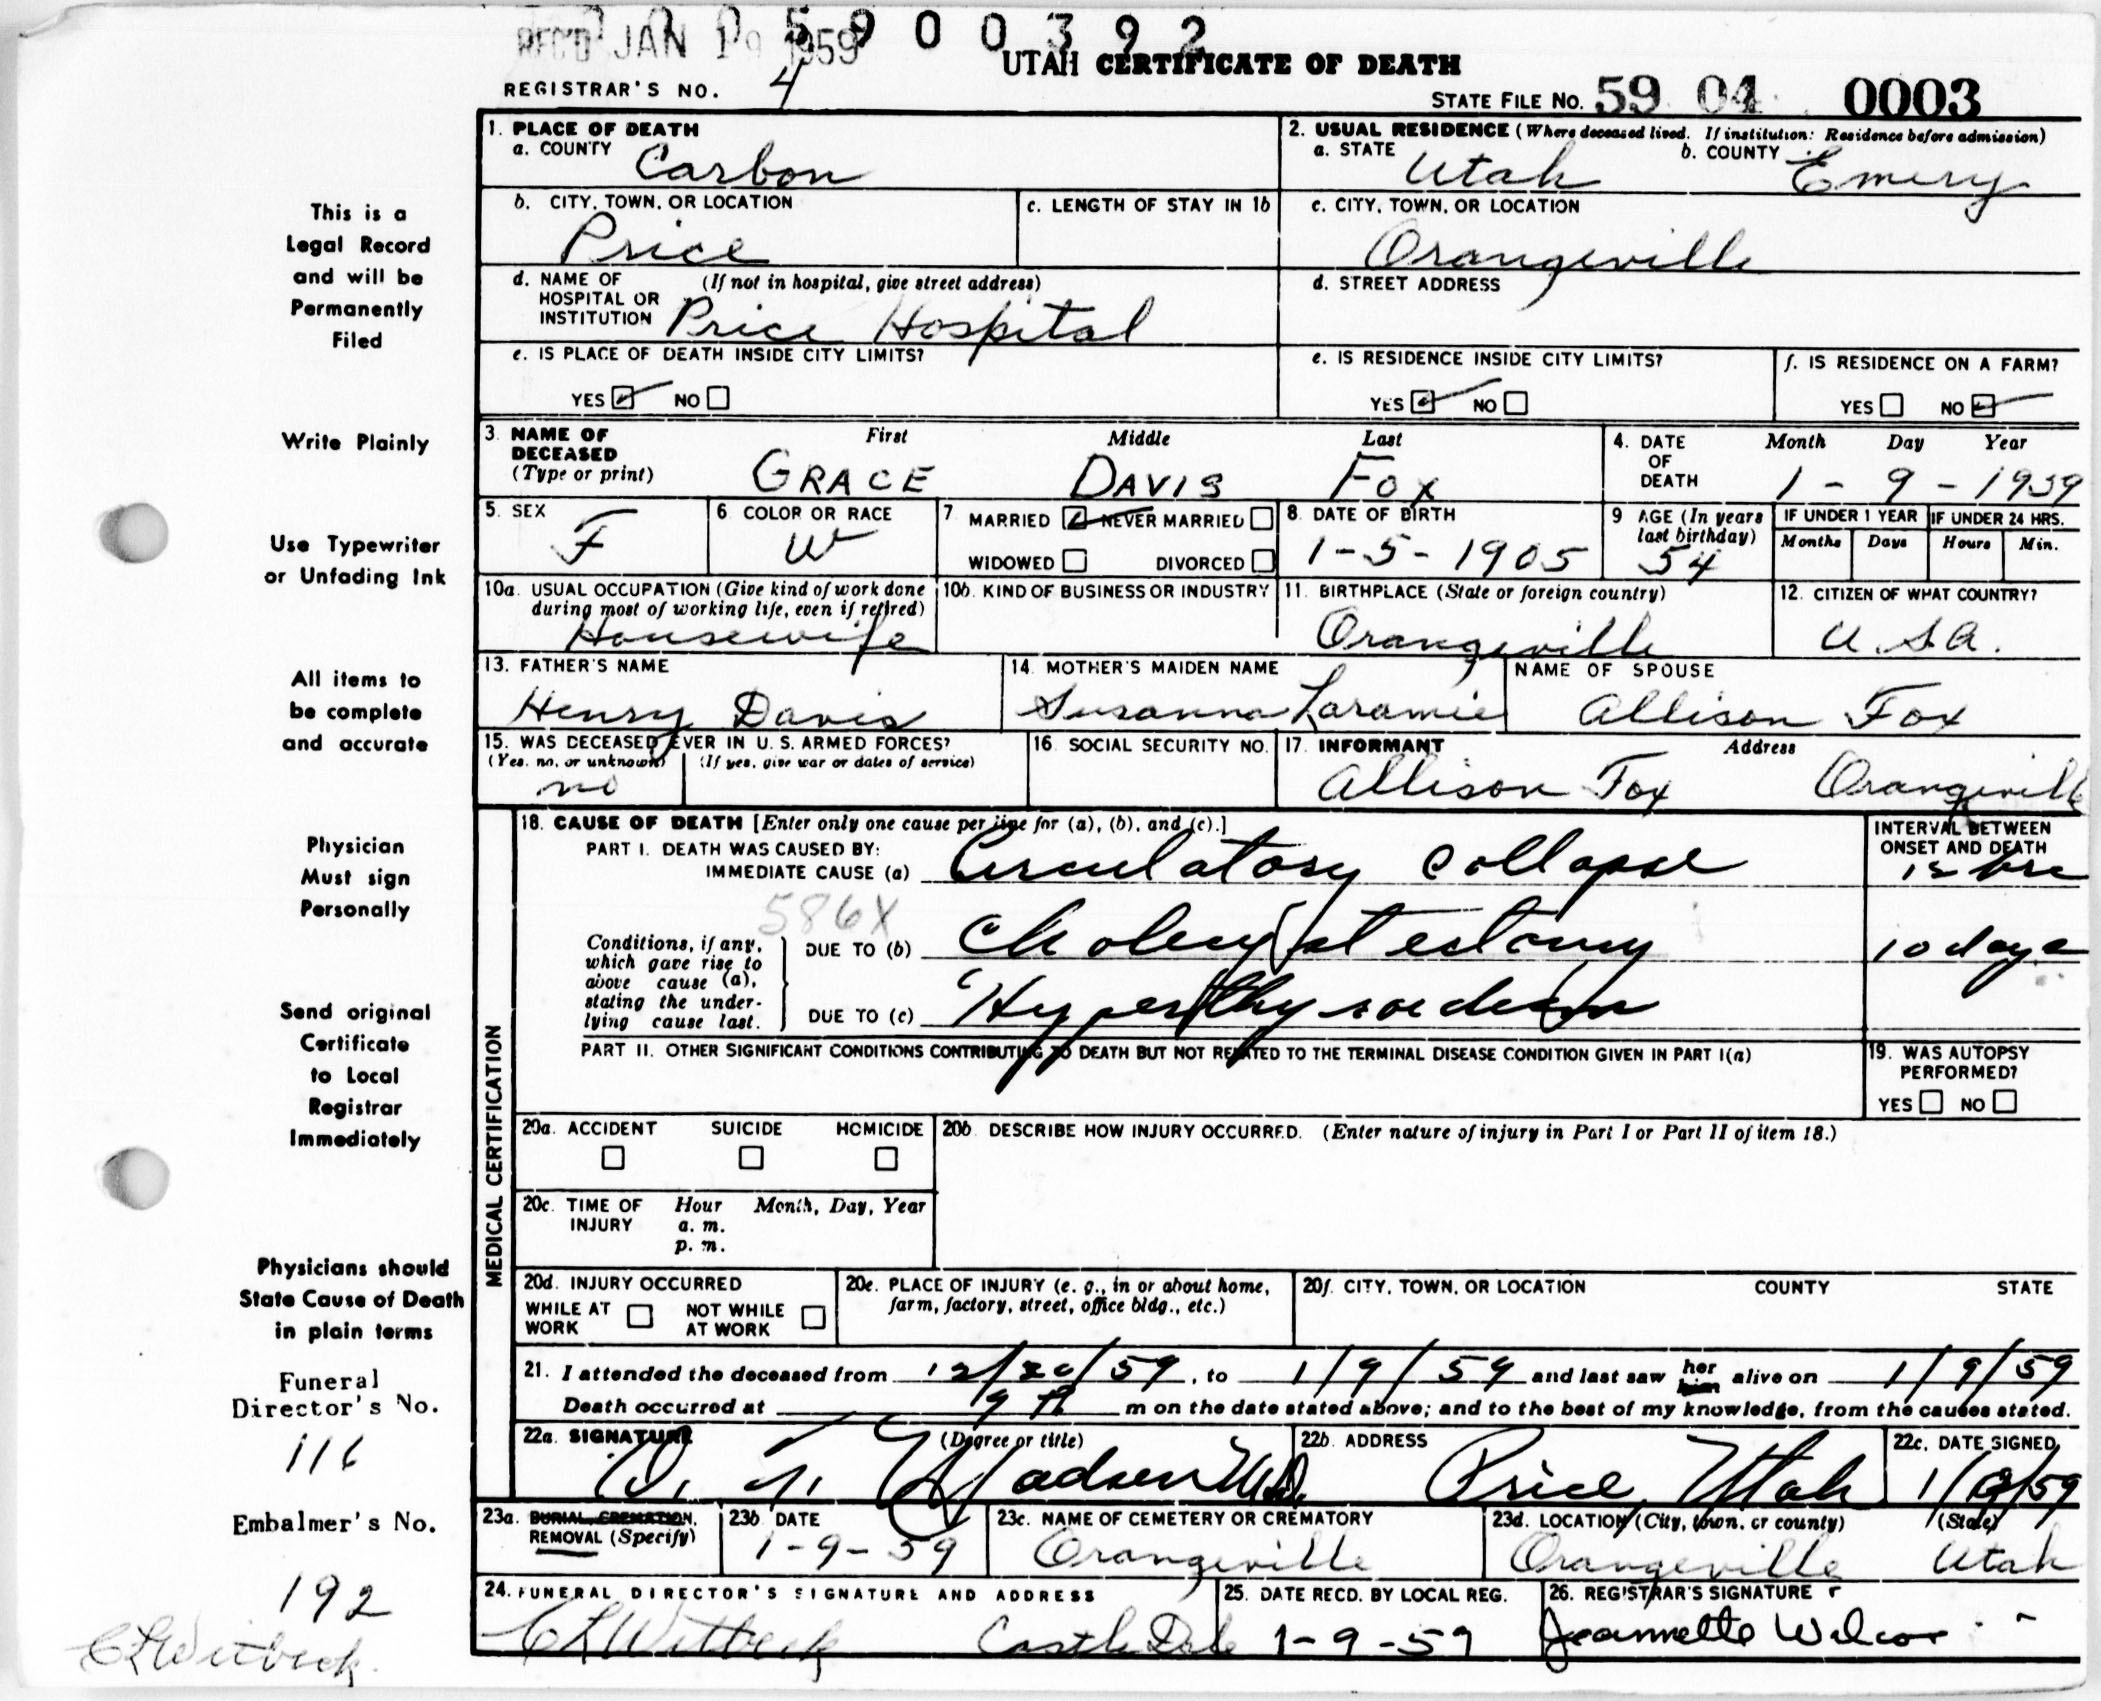 0 0 5 9 0 0 3 9 2
REC'D JAN 19 1959
UTAH CERTIFICATE OF DEATH
REGISTRAR'S NO. 4
STATE FILE NO. 59 04 0003
1. PLACE OF DEATH
a. COUNTY Carbon
2. USUAL RESIDENCE (Where deceased lived. If institution: Residence before admission)
a. STATE Utah b. COUNTY Emery
b. CITY, TOWN, OR LOCATION Price
c. LENGTH OF STAY IN 1b
c. CITY, TOWN, OR LOCATION Orangeville
d. NAME OF HOSPITAL OR INSTITUTION (If not in hospital, give street address) Price Hospital
d. STREET ADDRESS
e. IS PLACE OF DEATH INSIDE CITY LIMITS?
YES NO
e. IS RESIDENCE INSIDE CITY LIMITS?
YES NO
f. IS RESIDENCE ON A FARM?
YES NO
3. NAME OF DECEASED (Type or print)
First Middle Last
GRACE DAVIS FOX
4. DATE OF DEATH Month Day Year
1-9-1959
5. SEX F
6. COLOR OR RACE W
7 MARRIED NEVER MARRIED
WIDOWED DIVORCED
8. DATE OF BIRTH 1-5-1905
9 AGE (In years last birthday) 54
IF UNDER 1 YEAR Months Days
IF UNDER 24 HRS. Hours Min.
10a. USUAL OCCUPATION (Give kind of work done during most of working life, even if retired)
Housewife
10b. KIND OF BUSINESS OR INDUSTRY
11. BIRTHPLACE (State or foreign country)
Orangeville
12. CITIZEN OF WHAT COUNTRY?
U.S.A.
13. FATHER'S NAME
Henry Davis
14. MOTHER'S MAIDEN NAME
Susanna Laramie
NAME OF SPOUSE
Allison Fox
15. WAS DECEASED EVER IN U. S. ARMED FORCES?
(Yes, no, or unknown) (If yes, give war or dates of service)
no
16. SOCIAL SECURITY NO.
17. INFORMANT Address
Allison Fox Orangeville
MEDICAL CERTIFICATION
18. CAUSE OF DEATH [Enter only one cause per line for (a), (b), and (c).]
PART I. DEATH WAS CAUSED BY:
IMMEDIATE CAUSE (a) Circulatory collapse
INTERVAL BETWEEN ONSET AND DEATH
12 hrs
586X
Conditions, if any, which gave rise to above cause (a), stating the underlying cause last.
DUE TO (b) Cholecystectomy 10 days
DUE TO (c) Hyperthyroidism
PART II. OTHER SIGNIFICANT CONDITIONS CONTRIBUTING TO DEATH BUT NOT RELATED TO THE TERMINAL DISEASE CONDITION GIVEN IN PART I(a)
19. WAS AUTOPSY PERFORMED?
YES NO
20a. ACCIDENT SUICIDE HOMICIDE
20b. DESCRIBE HOW INJURY OCCURRED. (Enter nature of injury in Part I or Part II of item 18.)
20c. TIME OF INJURY Hour Month, Day, Year
a. m.
p. m.
20d. INJURY OCCURRED
WHILE AT WORK NOT WHILE AT WORK
20e. PLACE OF INJURY (e. g., in or about home, farm, factory, street, office bldg., etc.)
20f. CITY, TOWN, OR LOCATION COUNTY STATE
21. I attended the deceased from 12/20/59, to 1/9/59 and last saw her him alive on 1/9/59
Death occurred at 9 P m on the date stated above; and to the best of my knowledge, from the causes stated.
22a. SIGNATURE (Degree or title)
Madsen M.D.
22b. ADDRESS
Price, Utah
22c. DATE SIGNED
1/9/59
23a. BURIAL, CREMATION, REMOVAL (Specify)
23b. DATE
1-9-59
23c. NAME OF CEMETERY OR CREMATORY
Orangeville
23d. LOCATION (City, town, or county) (State)
Orangeville Utah
24. FUNERAL DIRECTOR'S SIGNATURE AND ADDRESS
CL Witbeck Castle Dale
25. DATE RECD. BY LOCAL REG.
1-9-59
26. REGISTRAR'S SIGNATURE
Jeannette Wilcox
This is a
Legal Record
and will be
Permanently
Filed
Write Plainly
Use Typewriter
or Unfading Ink
All items to
be complete
and accurate
Physician
Must sign
Personally
Send original
Certificate
to Local
Registrar
Immediately
Physicians should
State Cause of Death
in plain terms
Funeral
Director's No.
116
Embalmer's No.
192
CL Witbeck